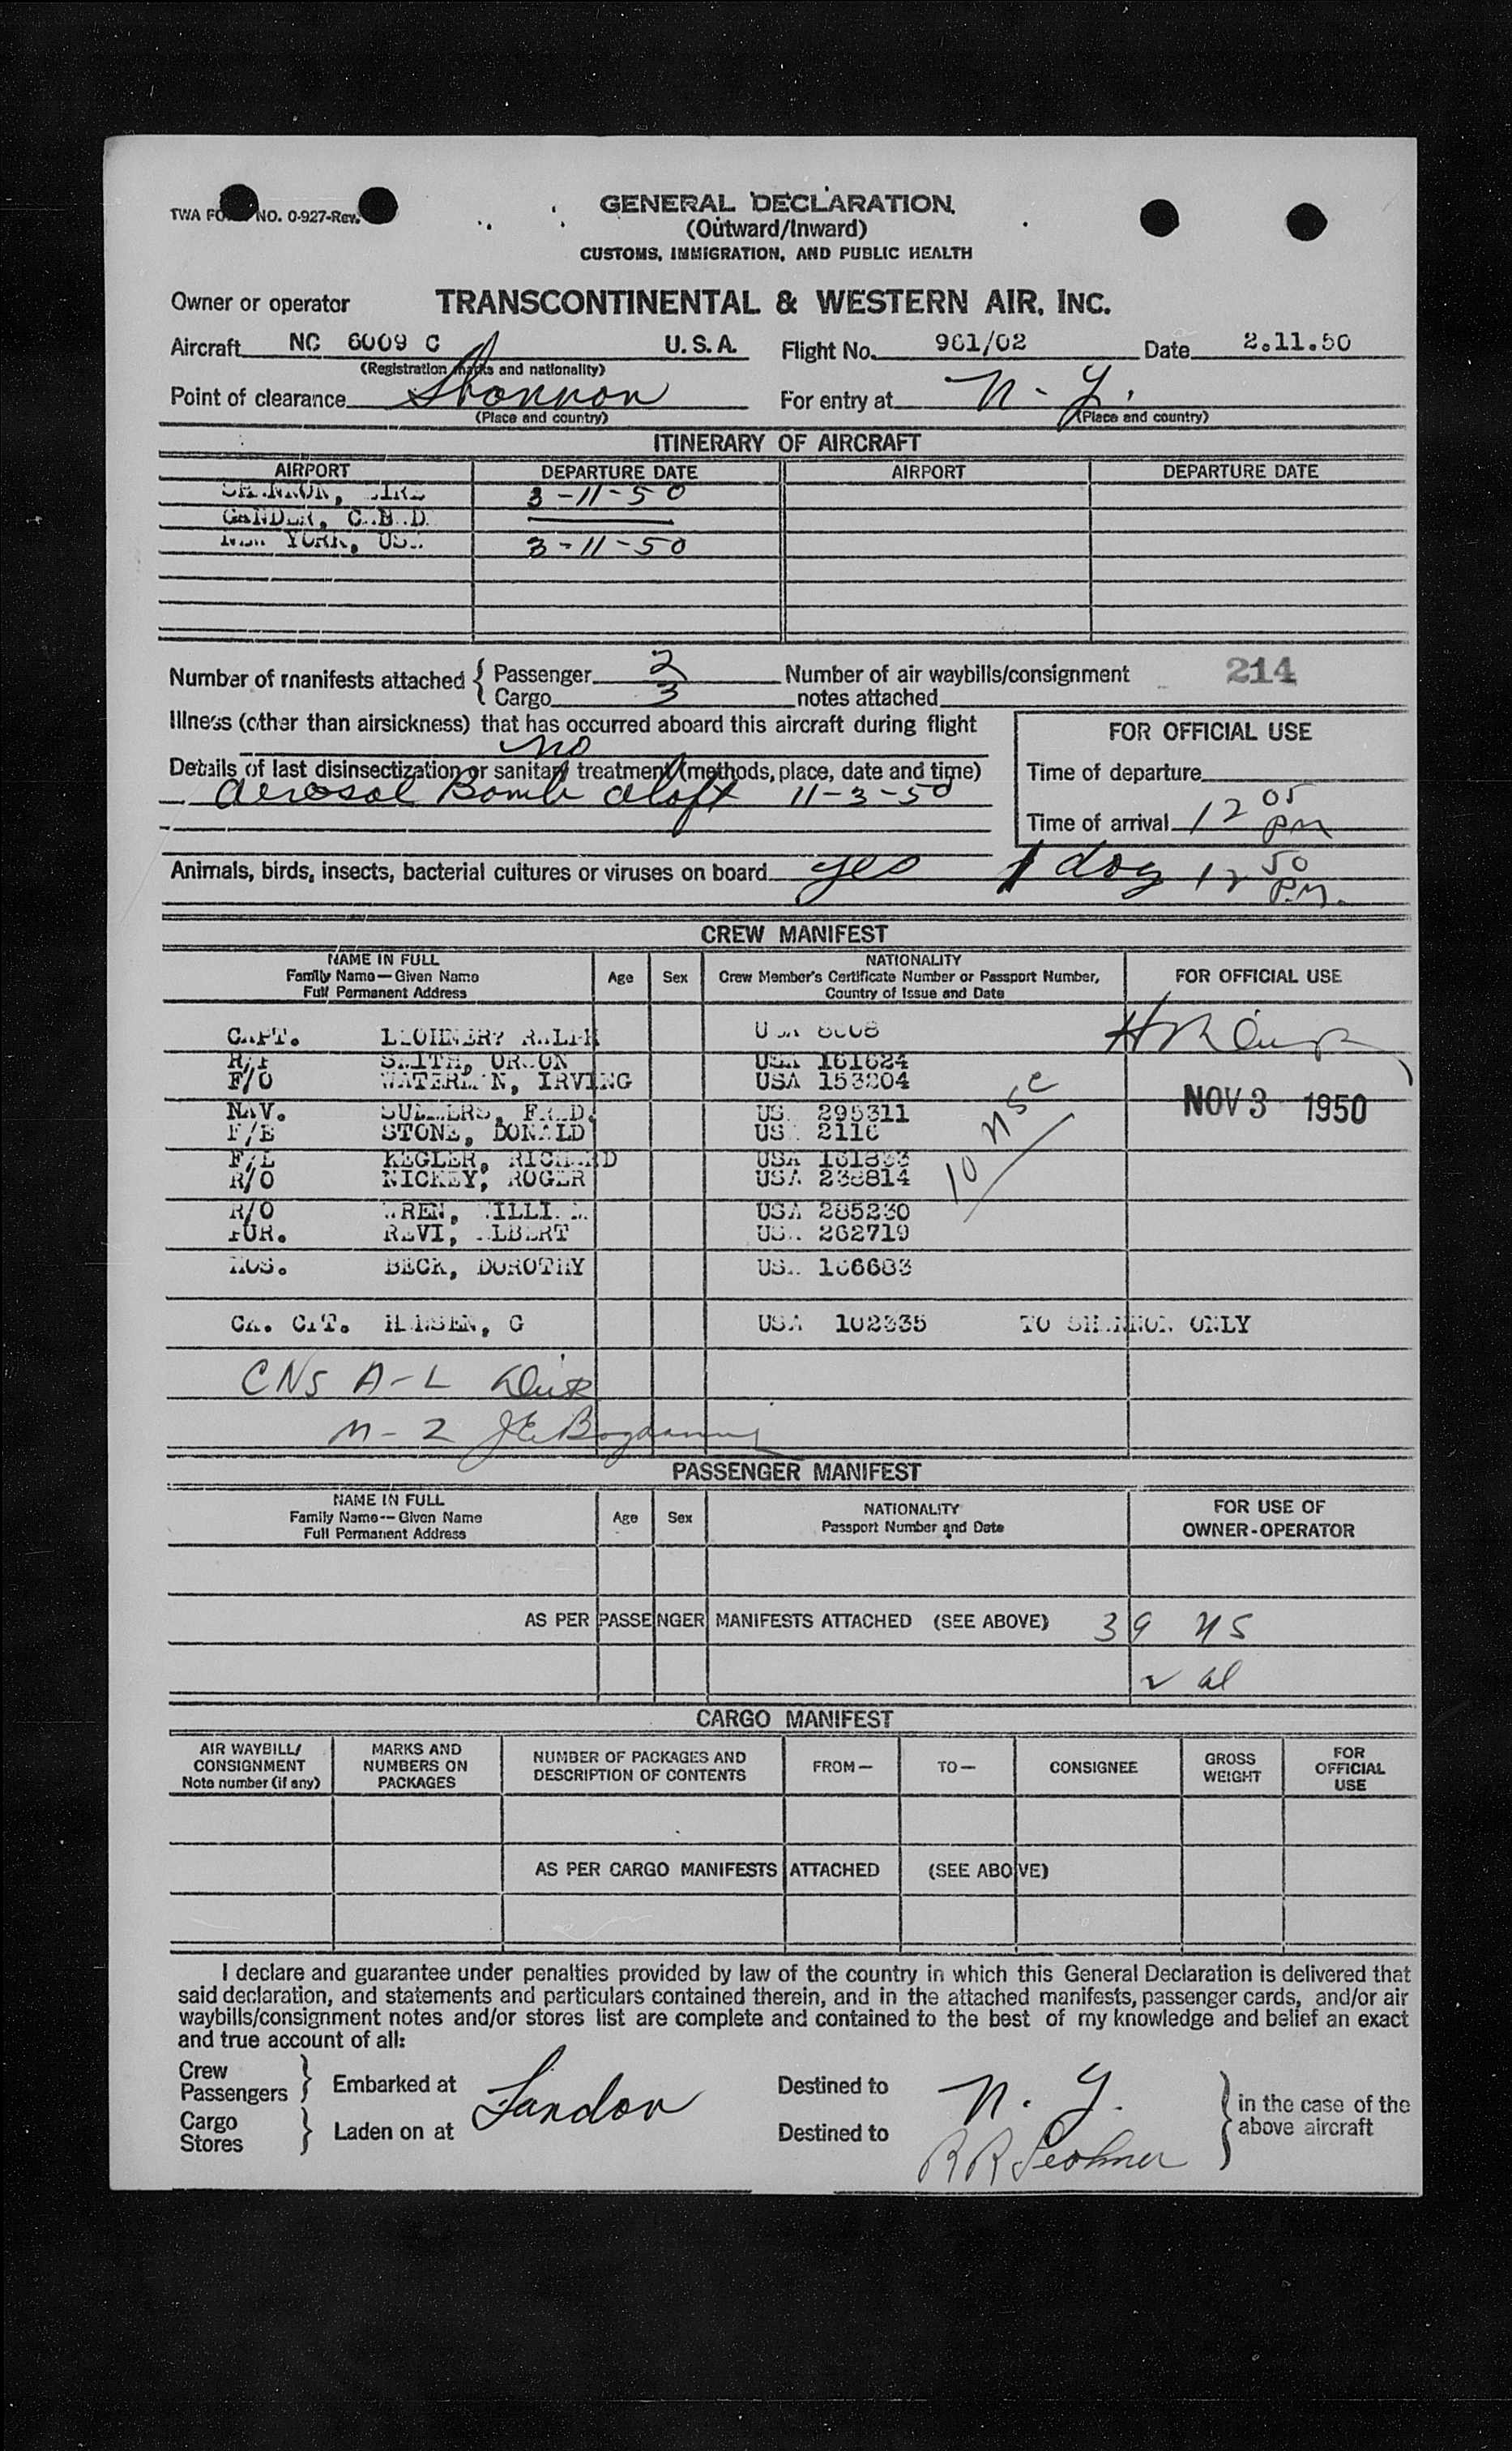 TWA FO NO. 0-927-Rev.
GENERAL DECLARATION
(Outward/Inward)
CUSTOMS, IMMIGRATION, AND PUBLIC HEALTH
Owner or operator TRANSCONTINENTAL & WESTERN AIR, INC.
Aircraft NC 6009 C U.S.A. Flight No. 961/02 Date 2.11.50
(Registration marks and nationality)
Point of clearance Shannon For entry at N.Y.
(Place and country) (Place and country)
ITINERARY OF AIRCRAFT
AIRPORT DEPARTURE DATE AIRPORT DEPARTURE DATE
SHANNON, EIRE 3-11-50
GANDER,
NEW YORK, USA 3-11-50
Number of manifests attached { Passenger 2 Number of air waybills/consignment 214
Cargo 3 notes attached
Illness (other than airsickness) that has occurred aboard this aircraft during flight
no
FOR OFFICIAL USE
Details of last disinsectization or sanitary treatment (methods, place, date and time)
Aerosol Bomb aloft 11-3-50
Time of departure
Time of arrival 12 05 PM
Animals, birds, insects, bacterial cultures or viruses on board yes 1 dog 12 50 P.M.
CREW MANIFEST
NAME IN FULL
Family Name—Given Name
Full Permanent Address
Age Sex
NATIONALITY
Crew Member's Certificate Number or Passport Number,
Country of Issue and Date
FOR OFFICIAL USE
CAPT. RALPH USA
SMITH, USA 161624
F/O WATERMAN, IRVING USA 153204
NAV. SUMMERS, FRED. USA 295311
F/E STONE, DONALD USA 2116
F/E KEGLER, RICHARD USA 161833
R/O HICKEY, ROGER USA 238814
R/O WREN, WILLIAM USA 285230
PUR. REVI, ALBERT USA 262719
HOS. BECK, DOROTHY USA 166683
NOV 3 1950
CK. CPT. HANSEN, G USA 102335 TO SHANNON ONLY
CNS A-L
M-Z
PASSENGER MANIFEST
NAME IN FULL
Family Name—Given Name
Full Permanent Address
Age Sex
NATIONALITY
Passport Number and Date
FOR USE OF
OWNER-OPERATOR
AS PER PASSENGER MANIFESTS ATTACHED (SEE ABOVE) 39
2 al
CARGO MANIFEST
AIR WAYBILL/
CONSIGNMENT
Note number (if any)
MARKS AND
NUMBERS ON
PACKAGES
NUMBER OF PACKAGES AND
DESCRIPTION OF CONTENTS
FROM— TO— CONSIGNEE
GROSS
WEIGHT
FOR
OFFICIAL
USE
AS PER CARGO MANIFESTS ATTACHED (SEE ABOVE)
I declare and guarantee under penalties provided by law of the country in which this General Declaration is delivered that
said declaration, and statements and particulars contained therein, and in the attached manifests, passenger cards, and/or air
waybills/consignment notes and/or stores list are complete and contained to the best of my knowledge and belief an exact
and true account of all:
Crew
Passengers } Embarked at London Destined to N.Y. } in the case of the
Cargo
Stores } Laden on at Destined to above aircraft